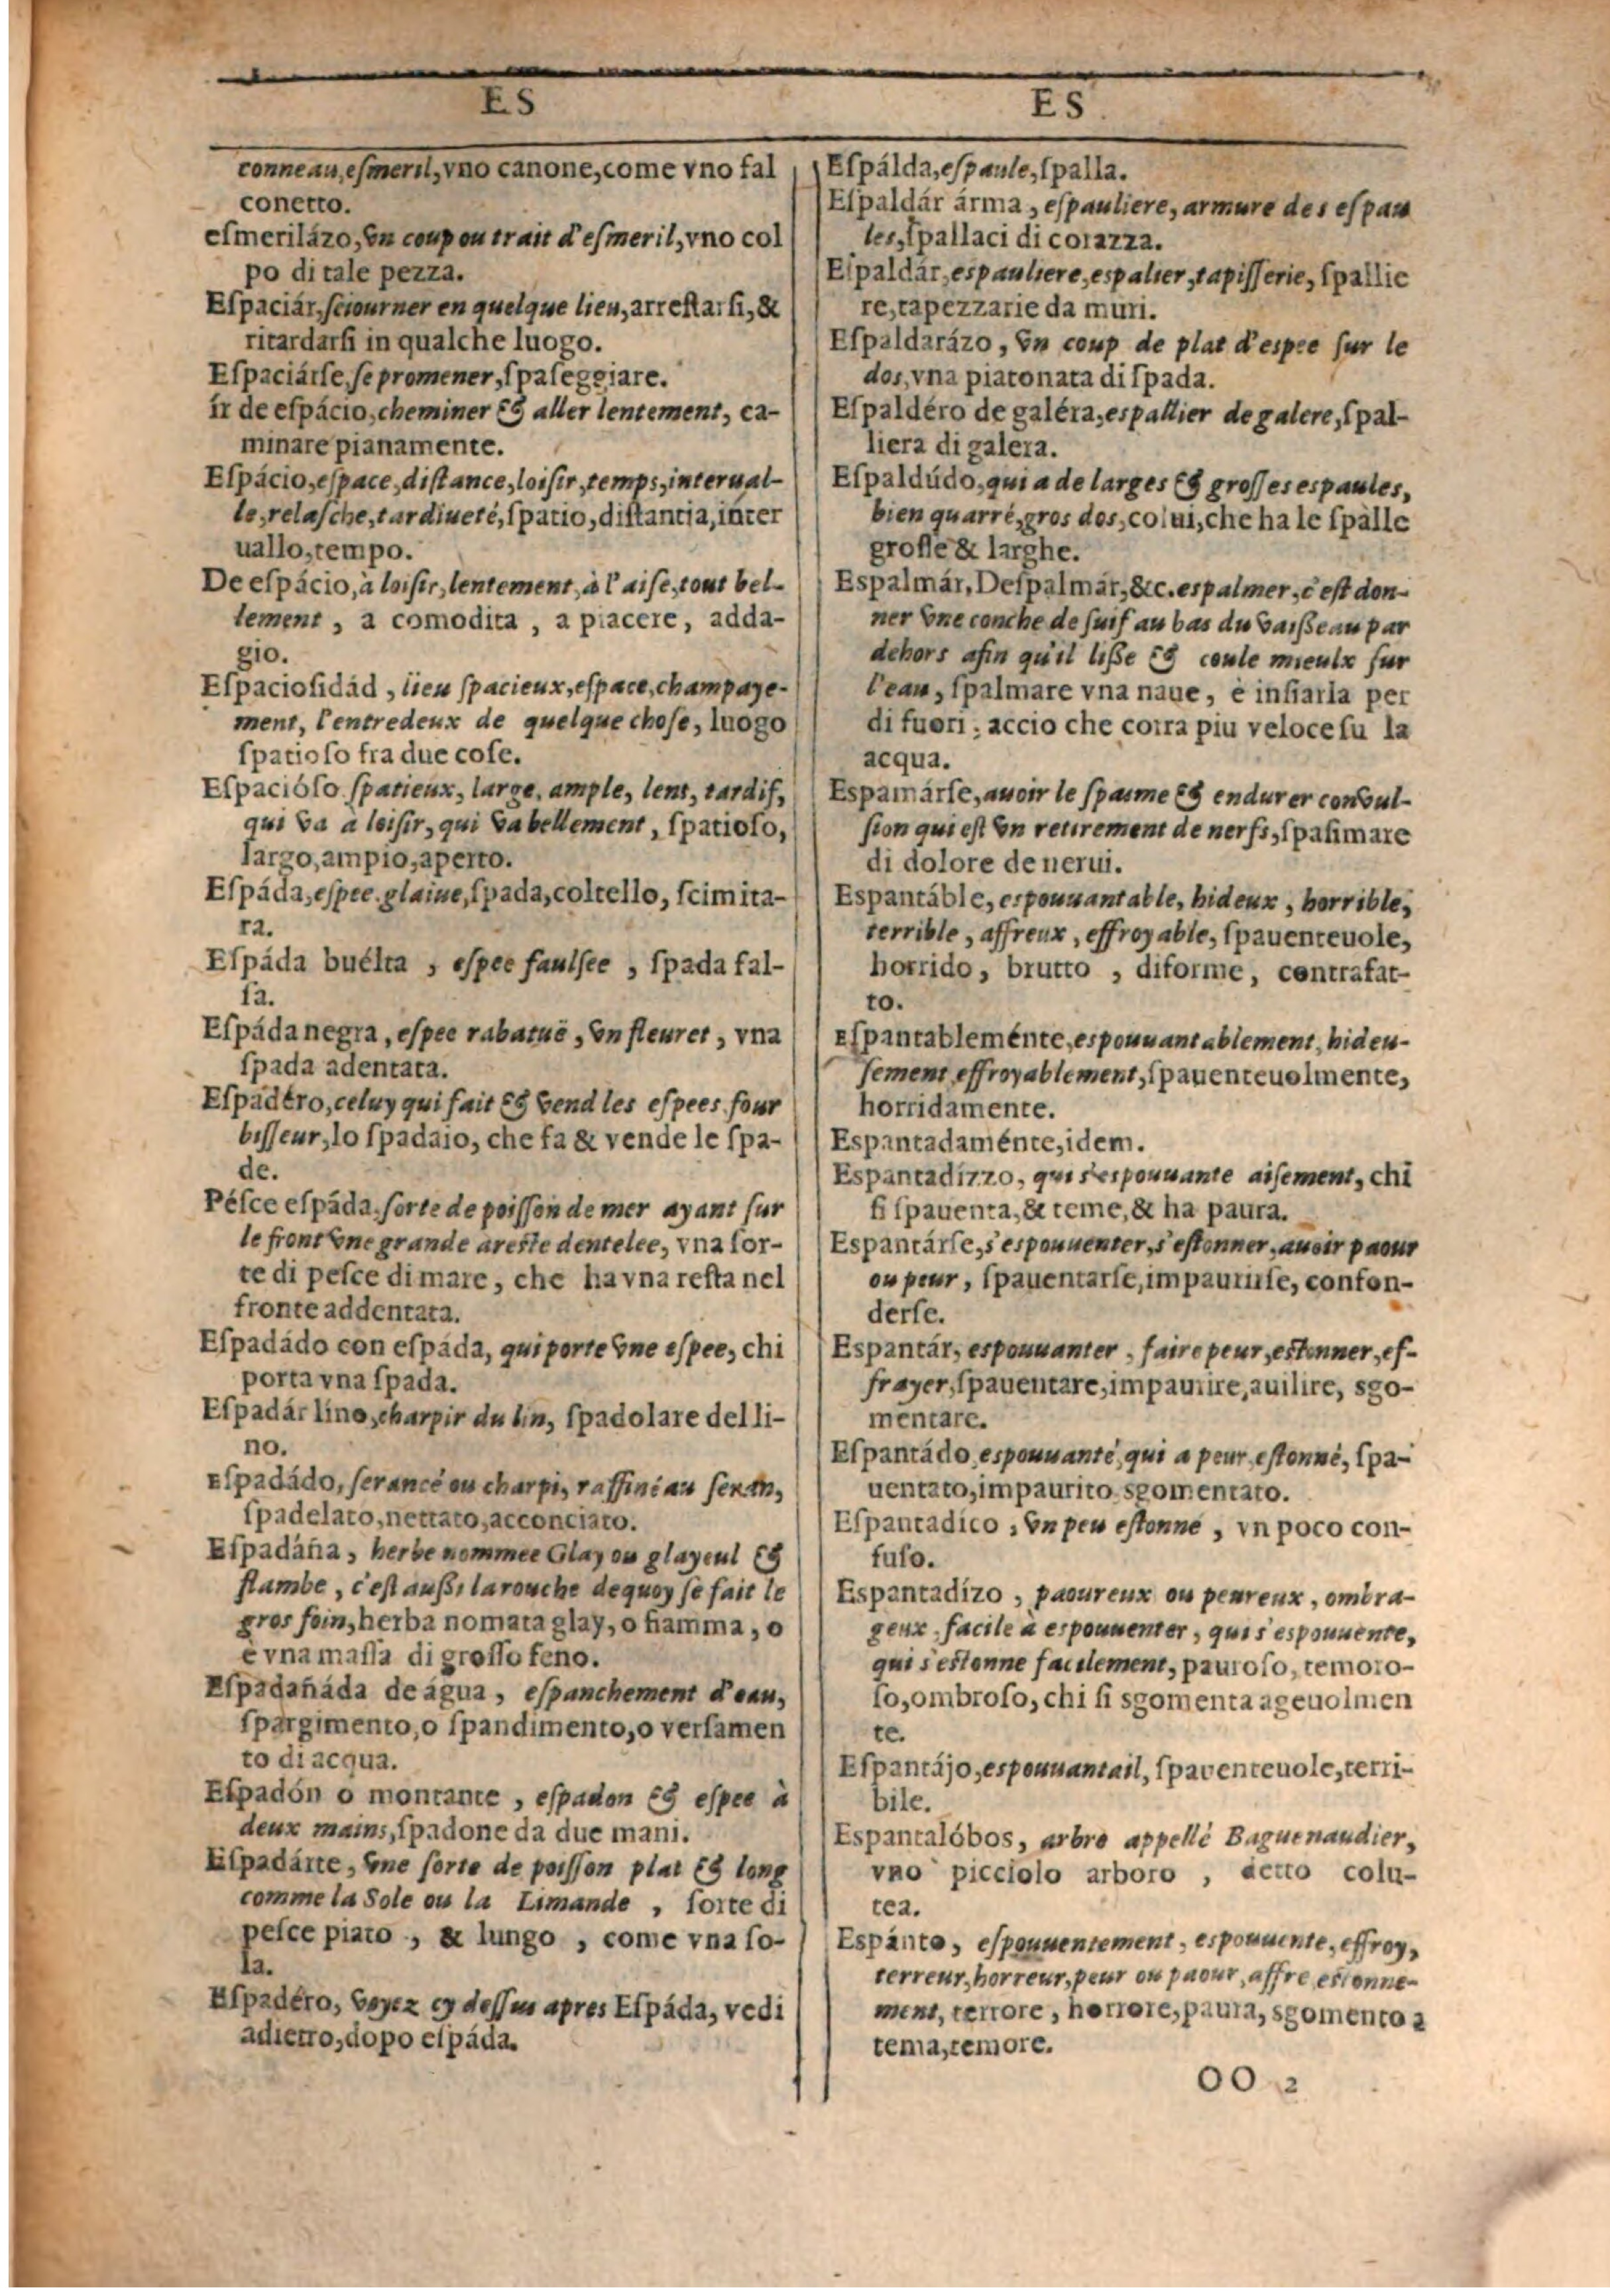 ES
conneau, eſmeril, vno canone, come vno fal
conetto.
eſmerilázo, vn coup ou trait d'eſmeril, vno col
po di tale pezza.
Eſpaciár, ſeiourner en quelque lieu, arreſtarſi, &
ritardarſi in qualche luogo.
Eſpaciárſe, ſe promener, ſpaſeggiare.
ír de eſpácio, cheminer & aller lentement, ca-
minare pianamente.
Eſpácio, eſpace, diſtance, loiſir, temps, interual-
le, relaſche, tardiueté, ſpatio, diſtantia, inter
uallo, tempo.
De eſpácio, à loiſir, lentement, à l'aiſe, tout bel-
lement, a comodita, a piacere, adda-
gio.
Eſpacioſidád, lieu ſpacieux, eſpace, champaye-
ment, l'entredeux de quelque choſe, luogo
ſpatioſo fra due coſe.
Eſpacióſo ſpatieux, large, ample, lent, tardif,
qui va à loiſir, qui va bellement, ſpatioſo,
largo, ampio, aperto.
Eſpáda, eſpee, glaiue, ſpada, coltello, ſcimita-
ra.
Eſpáda buélta, eſpee faulſee, ſpada fal-
ſa.
Eſpáda negra, eſpee rabatuë, vn fleuret, vna
ſpada adentata.
Eſpadéro, celuy qui fait & vend les eſpees, four
biſſeur, lo ſpadaio, che fa & vende le ſpa-
de.
Péſce eſpáda, ſorte de poiſſon de mer ayant ſur
le front vne grande areſte dentelee, vna ſor-
te di peſce di mare, che ha vna reſta nel
fronte addentata.
Eſpadádo con eſpáda, qui porte vne eſpee, chi
porta vna ſpada.
Eſpadár líno, charpir du lin, ſpadolare del li-
no.
Eſpadádo, ſerancé ou charpi, raffiné au ſeran,
ſpadelato, nettato, acconciato.
Eſpadáña, herbe nommee Glay ou glayeul &
flambe, c'eſt auſſi la rouche dequoy ſe fait le
gros foin, herba nomata glay, o fiamma, o
è vna maſſa di groſſo feno.
Eſpadañáda de água, eſpanchement d'eau,
ſpargimento, o ſpandimento, o verſamen
to di acqua.
Eſpadón o montante, eſpadon & eſpee à
deux mains, ſpadone da due mani.
Eſpadárte, vne ſorte de poiſſon plat & long
comme la Sole ou la Limande, ſorte di
peſce piato, & lungo, come vna ſo-
la.
Eſpadéro, voyez cy deſſus apres Eſpáda, vedi
adietro, dopo eſpáda.
ES
Eſpálda, eſpaule, ſpalla.
Eſpaldár árma, eſpauliere, armure des eſpau
les, ſpallaci di corazza.
Eſpaldár, espauliere, espalier, tapiſſerie, ſpallie
re, tapezzarie da muri.
Eſpaldarázo, vn coup de plat d'espee ſur le
dos, vna piatonata di ſpada.
Eſpaldéro de galéra, espallier de galere, ſpal-
liera di galera.
Eſpaldúdo, qui a de larges & groſſes espaules,
bien quarré, gros dos, colui, che ha le ſpalle
groſſe & larghe.
Espalmár, Deſpalmár, &c. espalmer, c'eſt don-
ner vne conche de ſuif au bas du vaiſſeau par
dehors afin qu'il liſſe & coule mieulx ſur
l'eau, ſpalmare vna naue, è inſiarla per
di fuori, accio che corra piu veloce ſu la
acqua.
Espamárſe, auoir le ſpaſme & endurer convul-
ſion qui eſt vn retirement de nerfs, ſpaſimare
di dolore de nerui.
Espantáble, espouuantable, hideux, horrible,
terrible, affreux, effroyable, ſpauenteuole,
horrido, brutto, diforme, contrafat-
to.
Eſpantableménte, espouuantablement, hideu-
ſement, effroyablement, ſpauenteuolmente,
horridamente.
Espantadaménte, idem.
Espantadízzo, qui s'espouuante aiſement, chi
ſi ſpauenta, & teme, & ha paura.
Espantárſe, s'espouuenter, s'eſtonner, auoir paour
ou peur, ſpauentarſe, impaurirſe, confon-
derſe.
Espantár, espouuanter, faire peur, eſtonner, ef-
frayer, ſpauentare, impaurire, auilire, sgo-
mentare.
Eſpantádo, espouuanté, qui a peur, eſtonné, ſpa-
uentato, impaurito sgomentato.
Eſpantadíco, vn peu eſtonné, vn poco con-
fuſo.
Espantadízo, paoureux ou peureux, ombra-
geux, facile à espouuenter, qui s'espouuente,
qui s'eſtonne facilement, pauroſo, temoro-
ſo, ombroſo, chi ſi sgomenta ageuolmen
te.
Eſpantájo, espouuantail, ſpauenteuole, terri-
bile.
Espantalóbos, arbre appellé Baguenaudier,
vno picciolo arboro, detto colu-
tea.
Espánto, eſpouuentement, espouuente, effroy,
terreur, horreur, peur ou paour, affre, eſtonne-
ment, terrore, horrore, paura, sgomento,
tema, temore.
OO 2